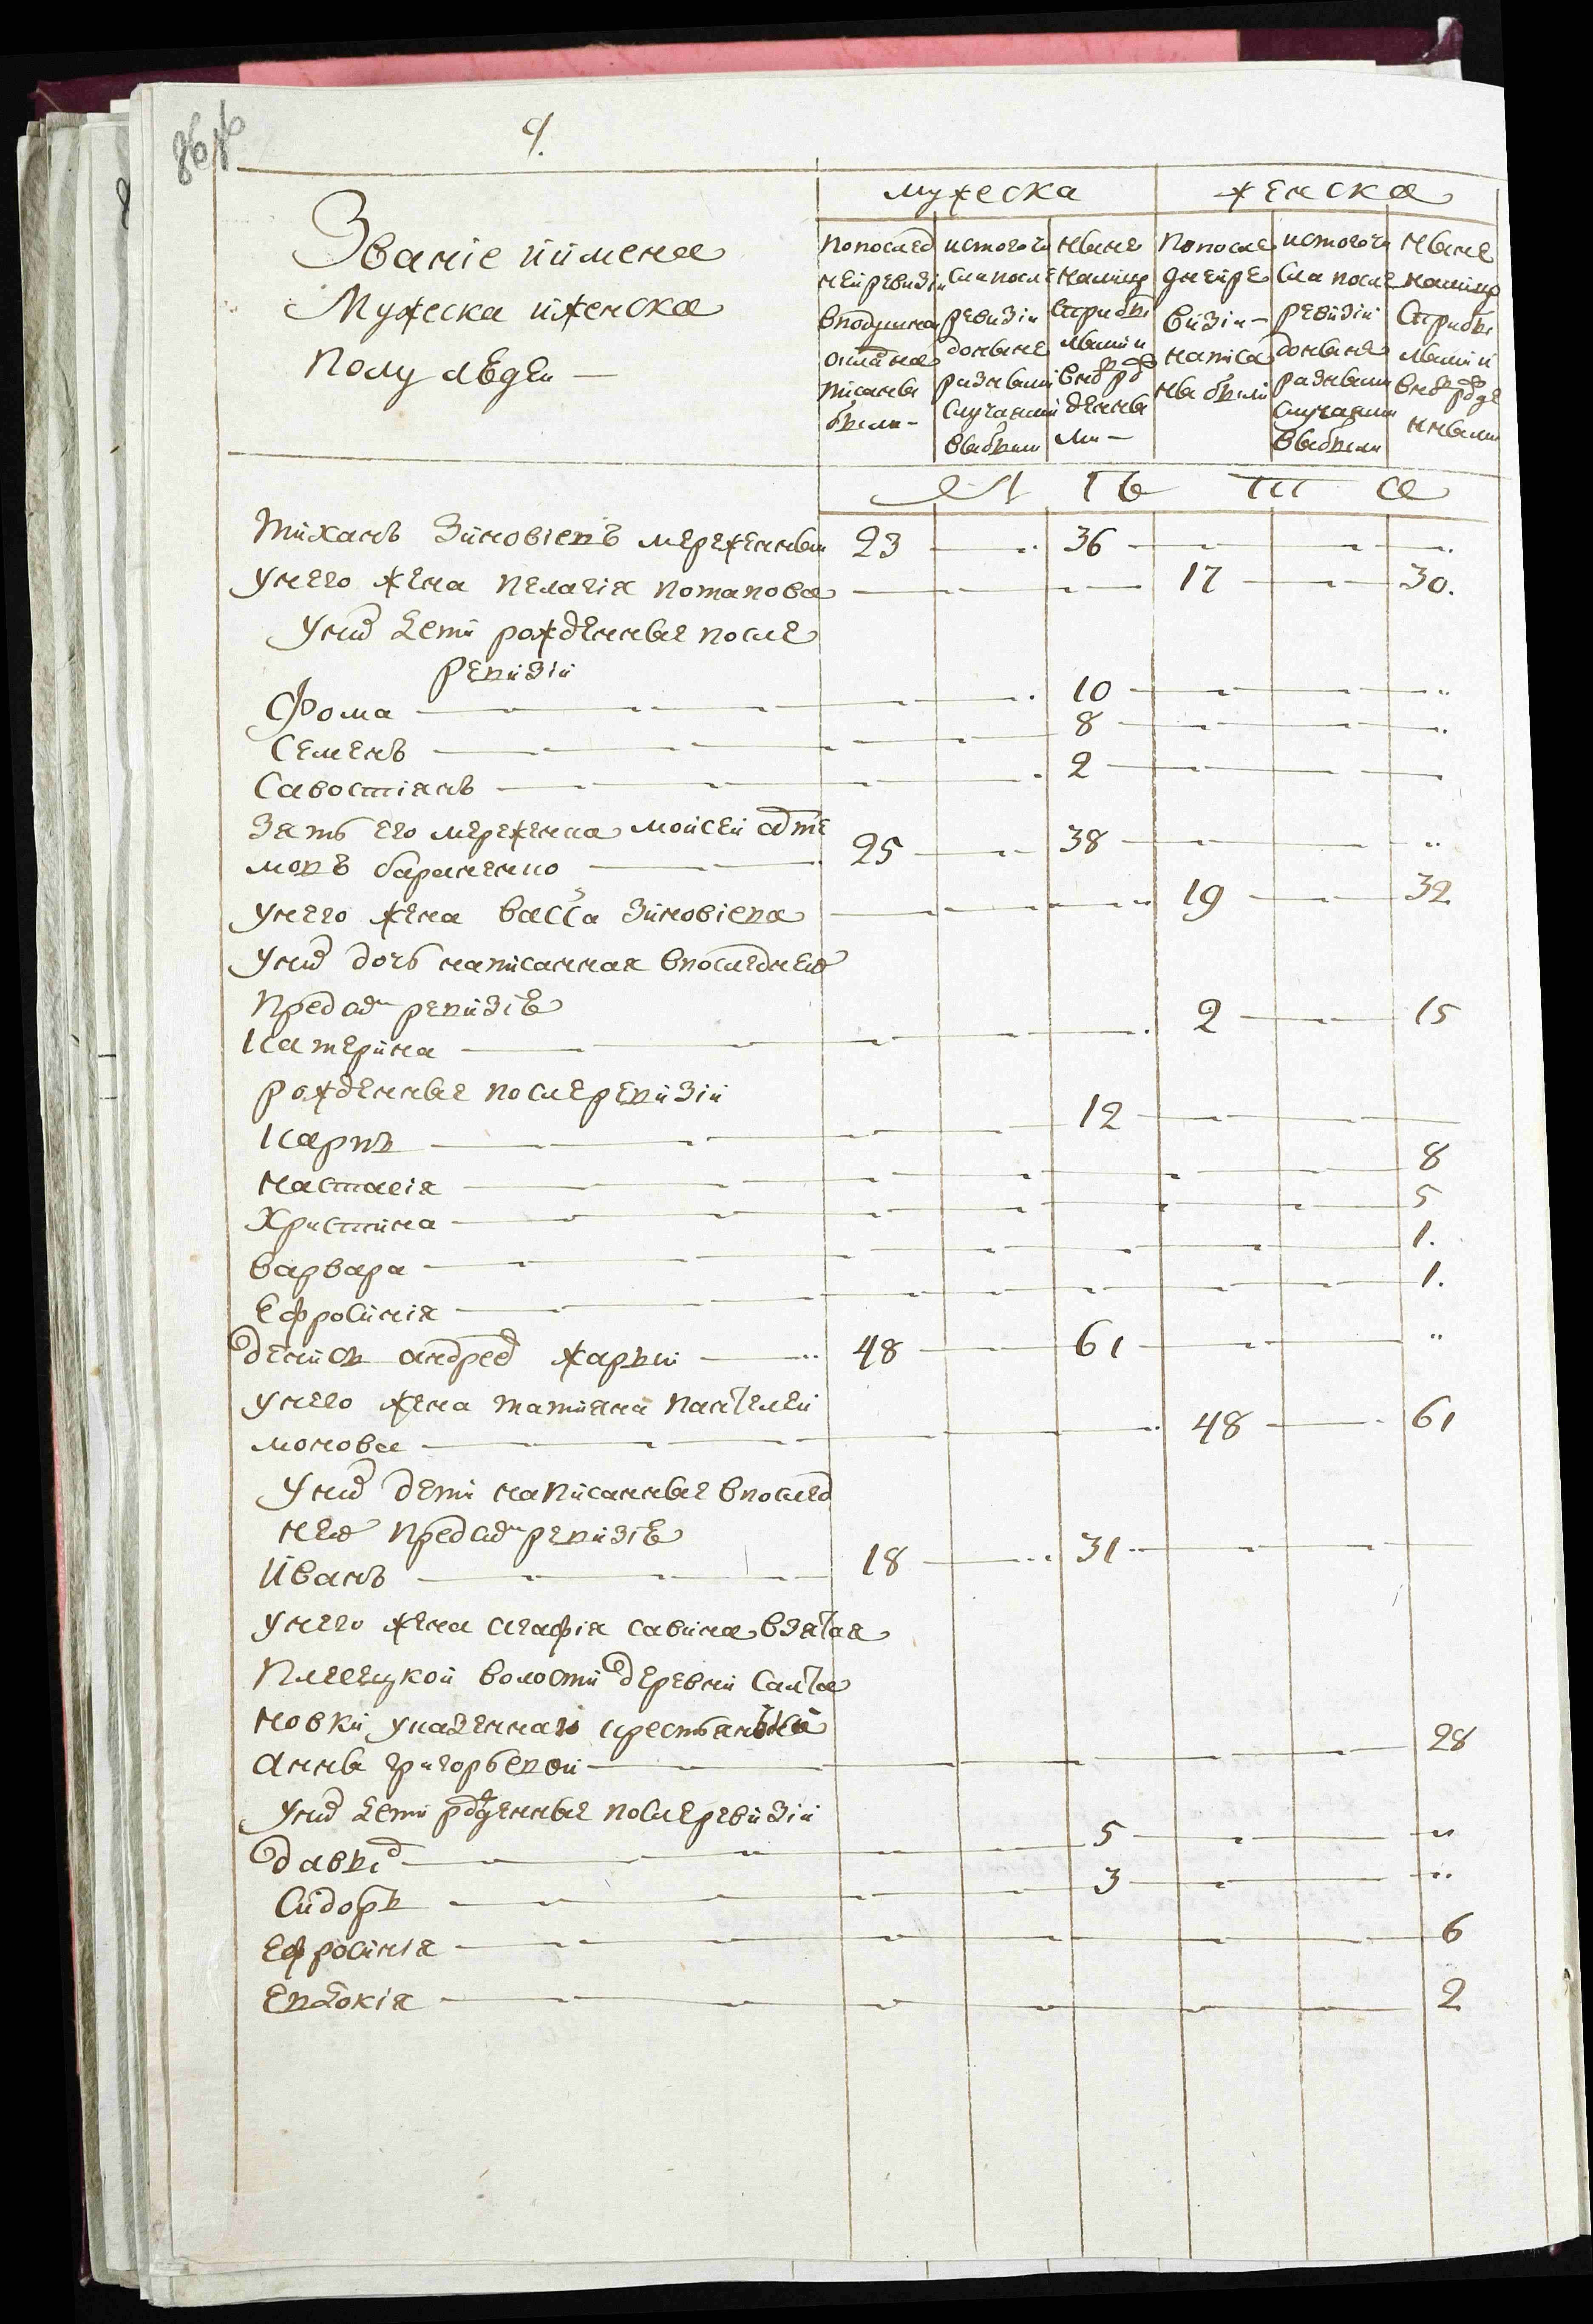 9.
Званіе иимена
Мужеска иженска
Полу людеи —
мужеска женска
попослед
неиревизіи
вподушном
писаны
были —
истогочи
сла после
ревизіи
доныне
разными
случаями
выбыли
ныне
налицо
попосле
днеире
визіи —
написа
ны были
истогочи
сла после
ревизіи
доныне
разными
случаями
выбыли
ныне
налицо
л ѣ т а
Тиханъ Зиновіевъ мереженныи 23 36
унего жена пелагія потапова 17 30.
Уних дети рожденные после
ревизіи
Фома 10
Семенъ 8
Савостіянъ 2
Зять его мереженна моисеи арте
мовъ бараненко 25 38
унего жена васса зиновіева 19 32
Уних дочь написанная впоследнею
Пред сим ревизію
Катерина 2 15
рожденные послеревизіи
Карпъ 12
настасія 8
Христина 5
варвара 1.
Ефросинія 1.
денисъ андреев жарыи 48 61
унего жена татияна пантелеи
монова 48 61
Уних дети написанные впослед
нею пред сим ревизію
Иванъ 18 31
унего жена агафія савина взятая
волости деревни Салта
новки
анны григорьевои 28
Уних дети рожденные послеревизіи
давид 5
Сидоръ 3
Ефросинія 6
Евдокія 2